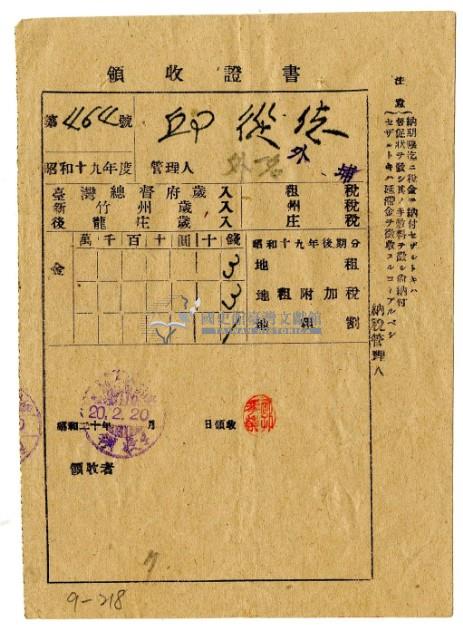 領收證書
第464號
邱從德
昭和十九年度 管理人
外
臺灣總督府歲入 租稅
新竹州歲入 州稅
後龍庄歲入 庄稅
萬千百十圓十錢
昭和十九年後期分
金
3 地租
3 地租附加稅
地租割
國史館臺灣文獻館
TAIWAN HISTORICA
20.2.20
昭和二十年 月 日領收
領收者
注意
納期限迄ニ稅金ヲ納付セザルトキハ
督促狀ヲ發シ其ノ手數料ヲ徵シ尙納付
セザルトキハ延滯金ヲ徵收スルコトアルベシ
納稅管理人
9-218